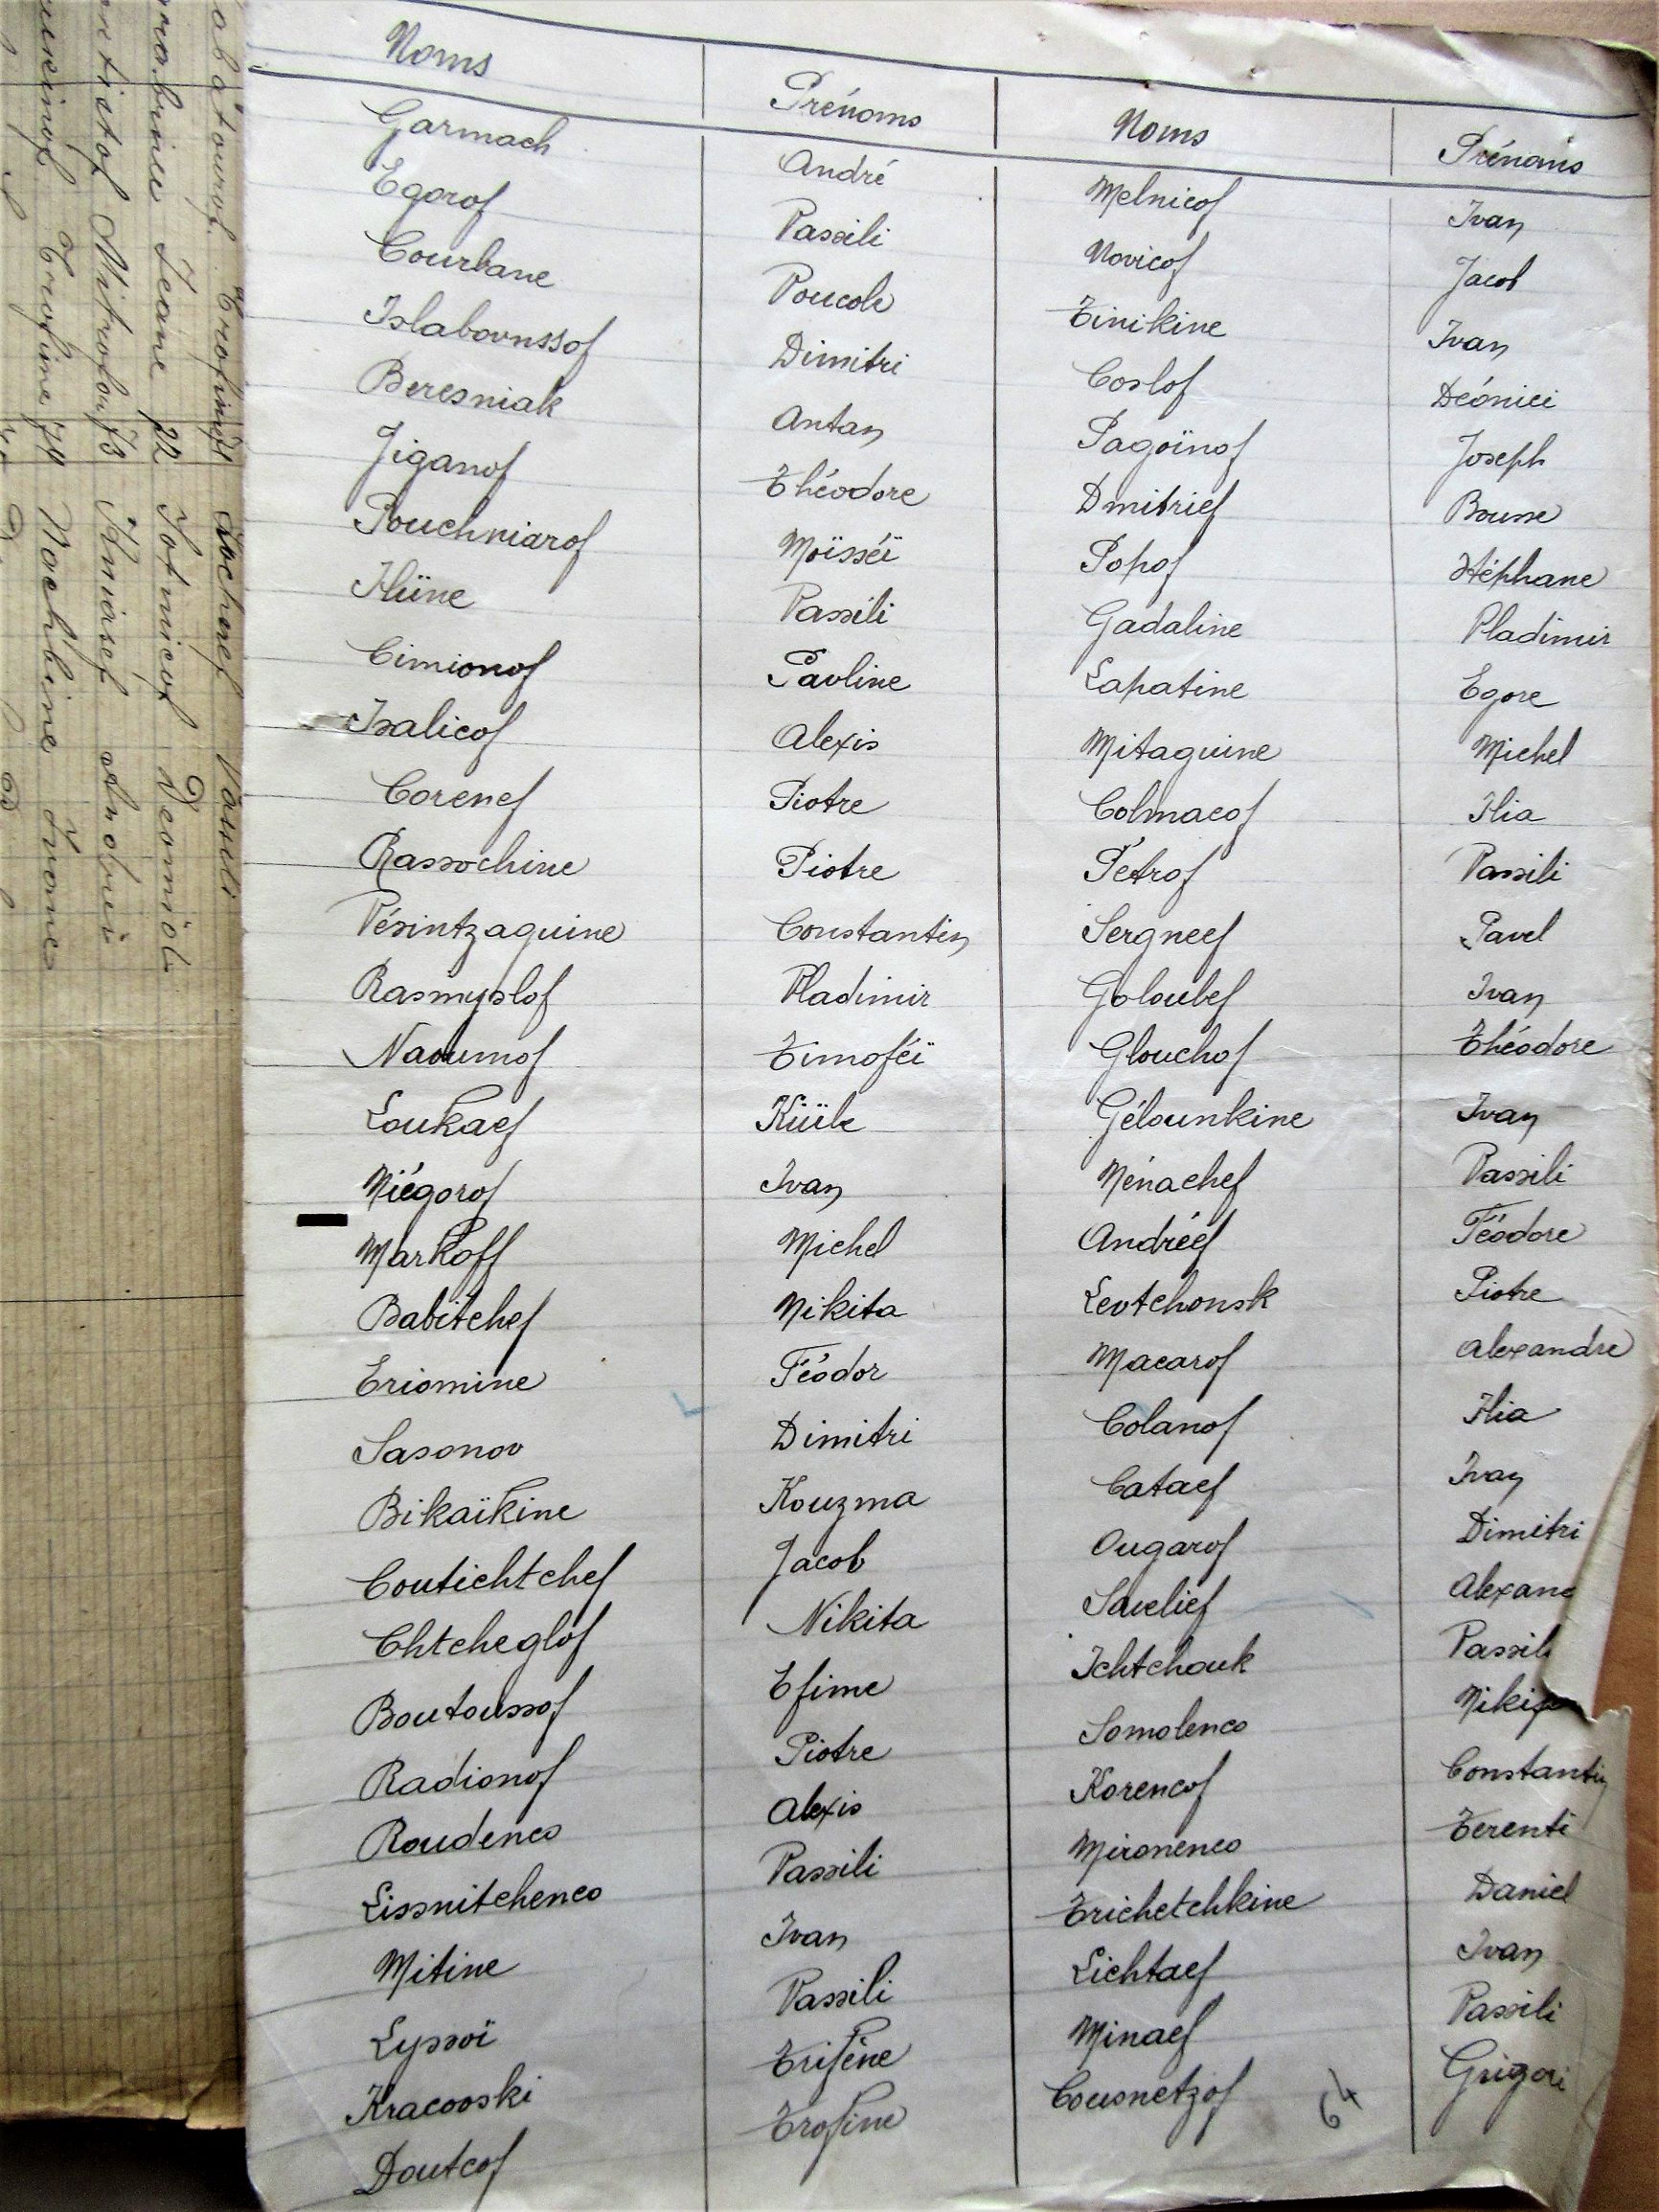 Noms Prénoms Noms Prénoms
Garmach André Melnicof Ivan
Egorof Vassili Novicof Jacob
Courbane Tinikine Ivan
Dimitri Coslof
Beresniak Anton Pagoïnof Joseph
Jiganof Théodore Dmitrief
Pouchniarof Moïsséï Popof Stéphane
Iliine Vassili Gadaline Vladimir
Cimionof Pavline Lapatine Egore
Isalicof Alexis Mitaguine Michel
Corenef Piotre Colmacof Ilia
Rassochine Piotre Pétrof Vassili
Vésintzaguine Constantin Sergneef Pavel
Rasmyslof Vladimir Goloubef Ivan
Naoumof Timoféï Glouchof Théodore
Loukaef Gélounkine Ivan
Niégorof Ivan Ménachef Vassili
Markoff Michel Andréef Féodore
Babitchef Nikita Levtchonsk Piotre
Eriomine Féodor Macarof Alexandre
Sasonov Dimitri Colanof Ilia
Bikaïkine Kouzma Cataef Ivan
Coutichtchef Jacob Ougarof Dimitri
Chtcheglof Nikita Savelief Alexand
Boutoussof Efime Ichtchouk Vassili
Radionof Piotre Somolenco Nikif
Roudenco Alexis Korencof Constantin
Lissnitchenco Vassili Mironenco Terenti
Mitine Ivan Trichetchkine Daniel
Lyssoï Vassili Lichtaef Ivan
Kracovski Trifène Minaef Vassili
Doutcof Trofine Cousnetzof Grigori
64